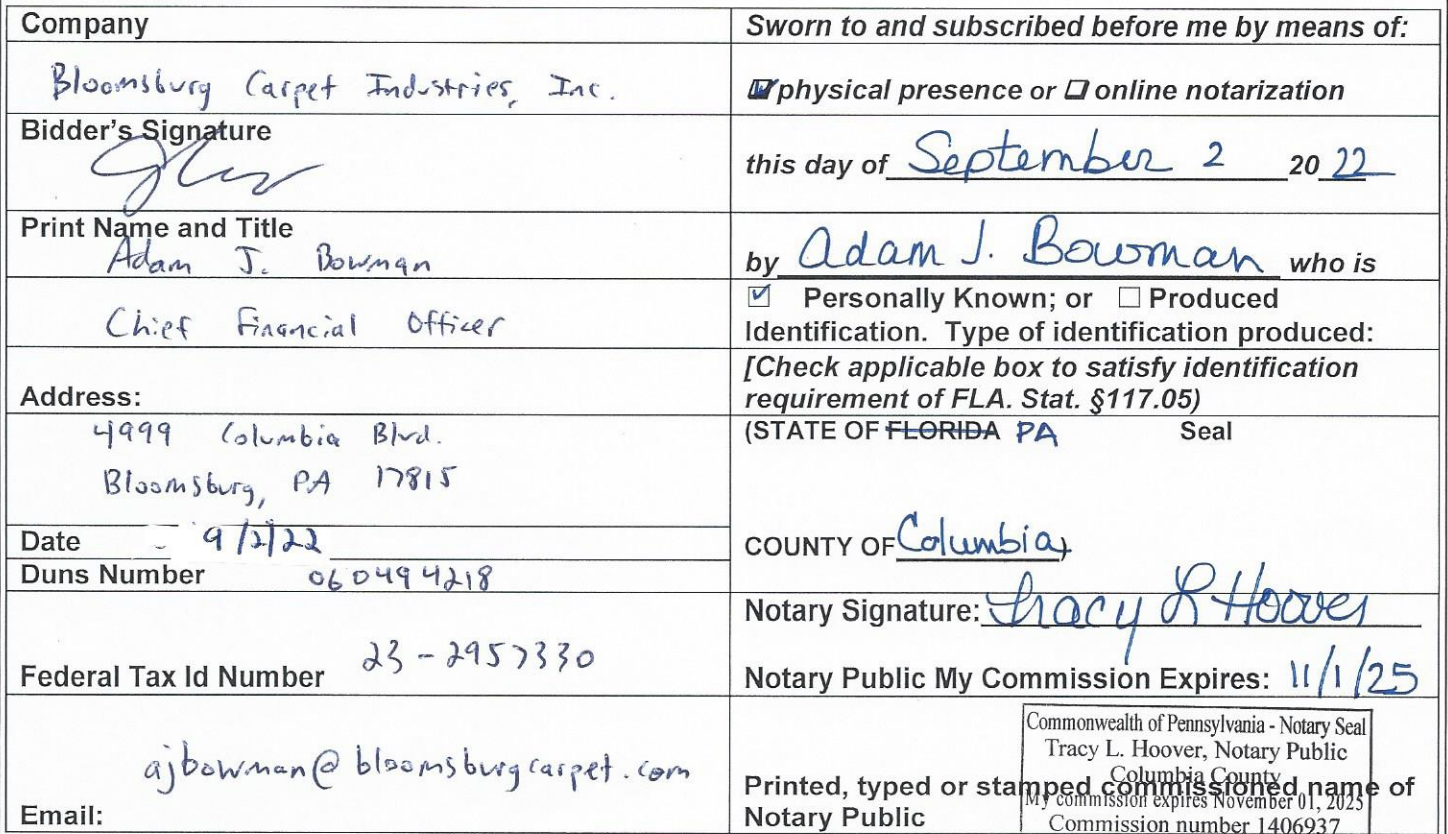 Company
Bloomsburg Carpet Industries, Inc.
Bidder's Signature
Print Name and Title
Adam J. Bowman
Chief Financial Officer
Address:
4999 Columbia Blvd.
Bloomsburg, PA 17815
Date 9/2/22
Duns Number 060494218
Federal Tax Id Number 23-2957330
ajbowman@bloomsburgcarpet.com
Email:
Sworn to and subscribed before me by means of:
physical presence or online notarization
this day of September 2 20 22
by Adam J. Bowman who is
Personally Known; or Produced
Identification. Type of identification produced:
[Check applicable box to satisfy identification
requirement of FLA. Stat. §117.05)
(STATE OF FLORIDA PA Seal
COUNTY OF Columbia)
Notary Signature: Tracy L Hoover
Notary Public My Commission Expires: 11/1/25
Commonwealth of Pennsylvania - Notary Seal
Tracy L. Hoover, Notary Public
Columbia County
My commission expires November 01, 2025
Commission number 1406937
Printed, typed or stamped commissioned name of
Notary Public